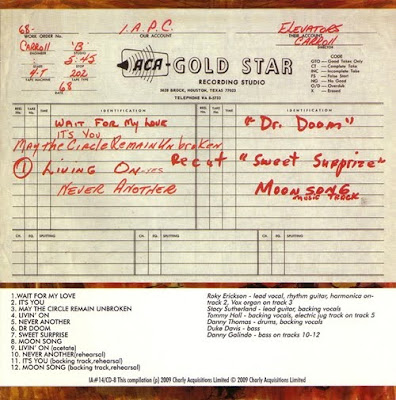 68-
WORK ORDER No.
I.A.P.C.
OUR ACCOUNT
ELEVATORS
THEIR ACCOUNT
CARROLL
'B'
CARROLL
5.45
202
68
DATE
ACA-GOLD STAR
RECORDING STUDIO
5628 BROCK, HOUSTON, TEXAS 77023
CODE
GTO — Good Takes Only
CT — Complete Take
INC — Incomplete Take
FS — False Start
NG — No Good
O/D — Overdub
X — Erased
REEL No.
TAKE No.
TIME
IDENTIFICATION
REEL No.
TAKE No.
TIME
IDENTIFICATION
WAIT FOR MY LOVE
"Dr. Doom"
IT'S YOU
MAY THE CIRCLE REMAIN UNBROKEN
① LIVING ON-YES
Recut
"Sweet Surprize"
NEVER ANOTHER
MOON SONG
MUSIC TRACK
CUT
IN.
SPLICING
OUT
CUT
IN.
SPLICING
OUT
1.WAIT FOR MY LOVE
2. IT'S YOU
3. MAY THE CIRCLE REMAIN UNBROKEN
4. LIVIN' ON
5. NEVER ANOTHER
6. DR DOOM
7. SWEET SURPRISE
8. MOON SONG
9. LIVIN' ON (acetate)
10. NEVER ANOTHER(rehearsal)
11. IT'S YOU (backing track,rehearsal)
12. MOON SONG (backing track,rehearsal)
Roky Erickson - lead vocal, rhythm guitar, harmonica on-
track 2, Vox organ on track 3
Stacy Sutherland - lead guitar, backing vocals
Tommy Hall - backing vocals, electric jug track on track 5
Danny Thomas - drums, backing vocals
Duke Davis - bass
Danny Galindo - bass on tracks 10-12
IA#14/CD-8 This compilation (p) 2009 Charly Acquisitions Limited © 2009 Charly Acquisitions Limited